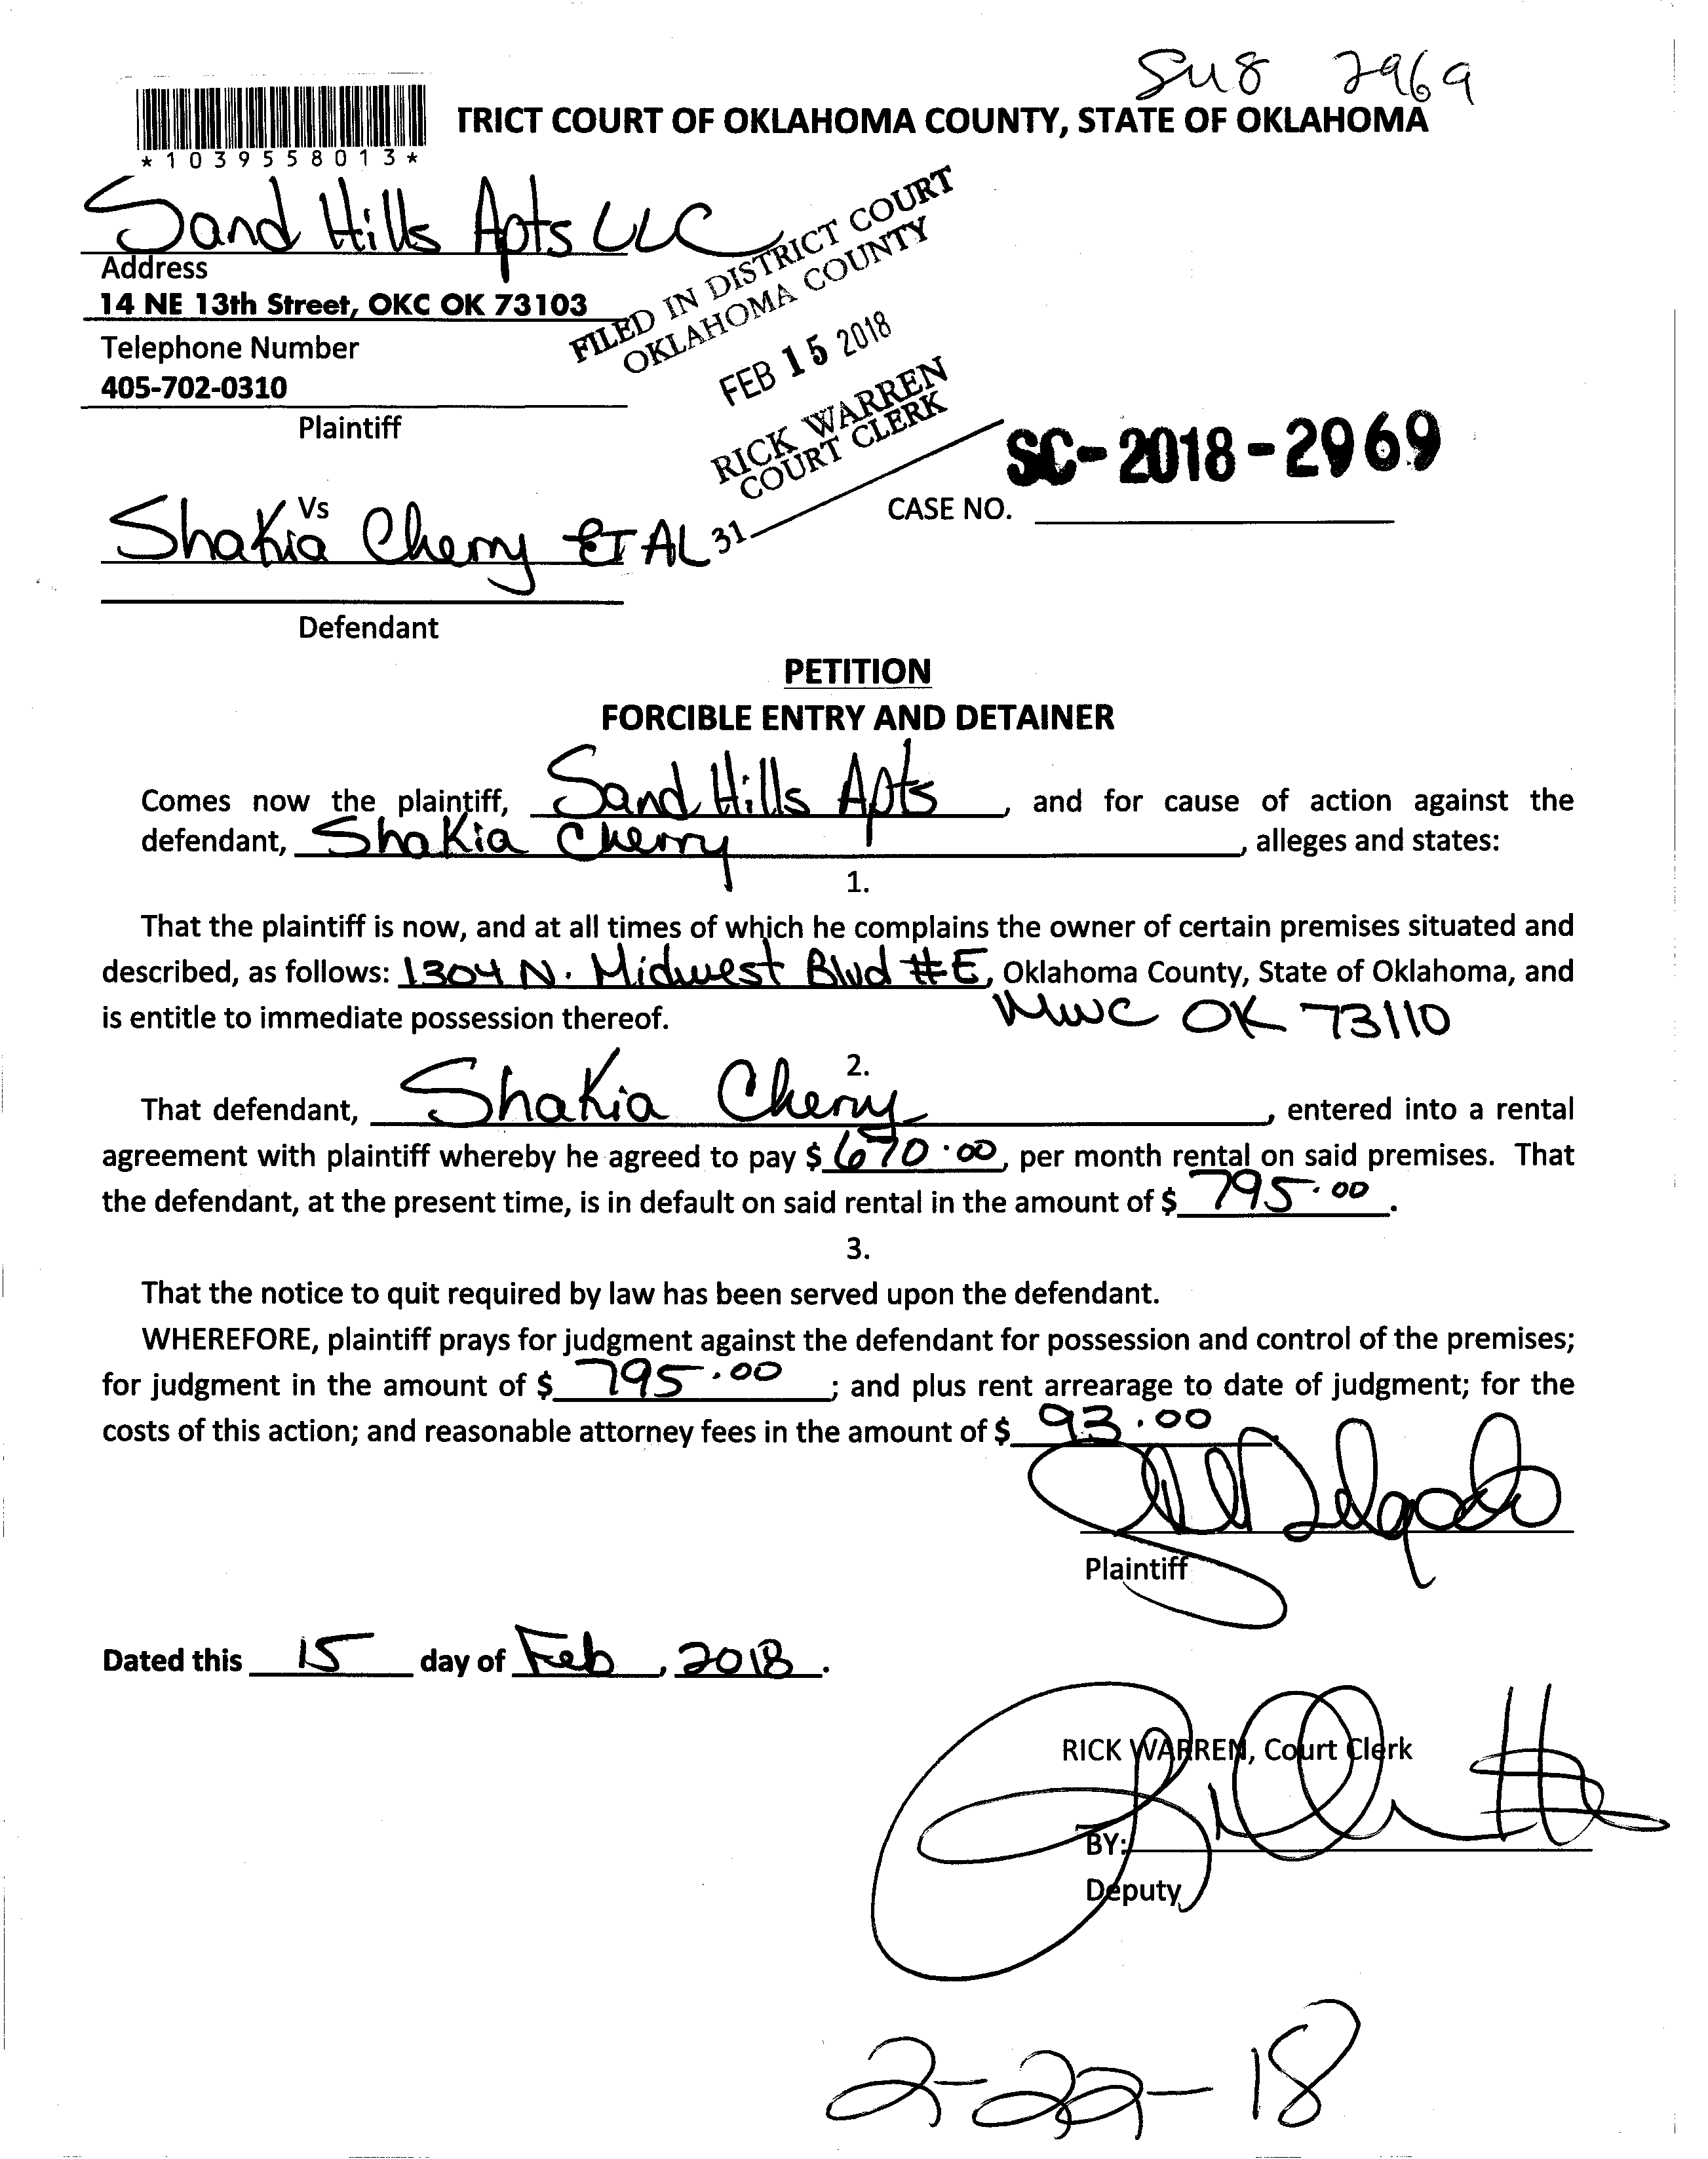 2969
TRICT COURT OF OKLAHOMA COUNTY, STATE OF OKLAHOMA
*1039558013*
Sand Hills Apts LLC
Address
14 NE 13th Street, OKC OK 73103
Telephone Number
405-702-0310
Plaintiff
FILED IN DISTRICT COURT
OKLAHOMA COUNTY
FEB 15 2018
RICK WARREN
COURT CLERK
31
SC-2018-2969
CASE NO.
Vs
Shakia Cherry ET AL
Defendant
PETITION
FORCIBLE ENTRY AND DETAINER
Comes now the plaintiff, Sand Hills Apts, and for cause of action against the
defendant, Shakia Cherry, alleges and states:
1.
That the plaintiff is now, and at all times of which he complains the owner of certain premises situated and
described, as follows: 1304 N. Midwest Blvd #E, Oklahoma County, State of Oklahoma, and
is entitle to immediate possession thereof. MWC OK 73110
2.
That defendant, Shakia Cherry, entered into a rental
agreement with plaintiff whereby he agreed to pay $ 670.00, per month rental on said premises. That
the defendant, at the present time, is in default on said rental in the amount of $ 795.00.
3.
That the notice to quit required by law has been served upon the defendant.
WHEREFORE, plaintiff prays for judgment against the defendant for possession and control of the premises;
for judgment in the amount of $ 795.00; and plus rent arrearage to date of judgment; for the
costs of this action; and reasonable attorney fees in the amount of $ 93.00
Delgado
Plaintiff
Dated this 15 day of Feb, 2018.
RICK WARREN, Court Clerk
BY:
Deputy
2-22-18